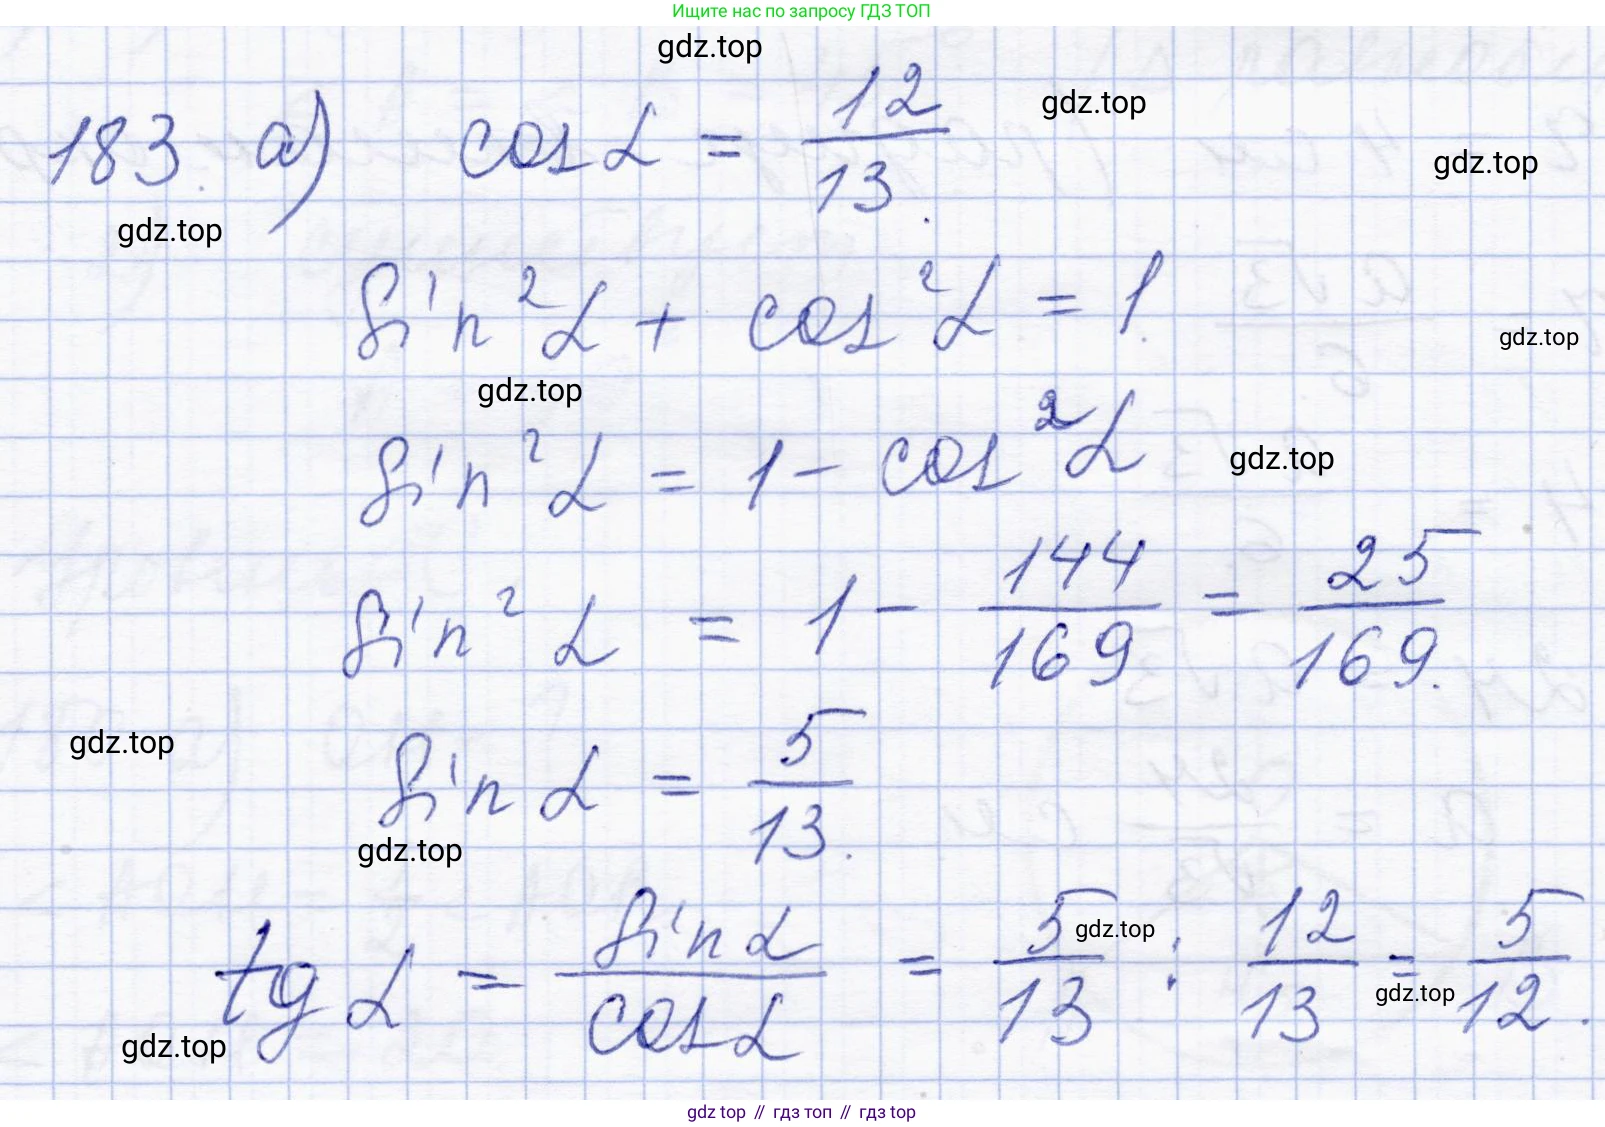 Ищите нас по запросу ГДЗ ТОП
gdz.top
183. а) cos α = 12/13.
gdz.top
gdz.top
gdz.top
sin² α + cos² α = 1.
gdz.top
gdz.top
sin² α = 1 - cos² α
gdz.top
sin² α = 1 - 144/169 = 25/169.
gdz.top
sin α = 5/13.
gdz.top
tg α = sin α/cos α = 5/13 : 12/13 = 5/12.
gdz.top
gdz.top
gdz.top
gdz top // гдз топ // гдз top